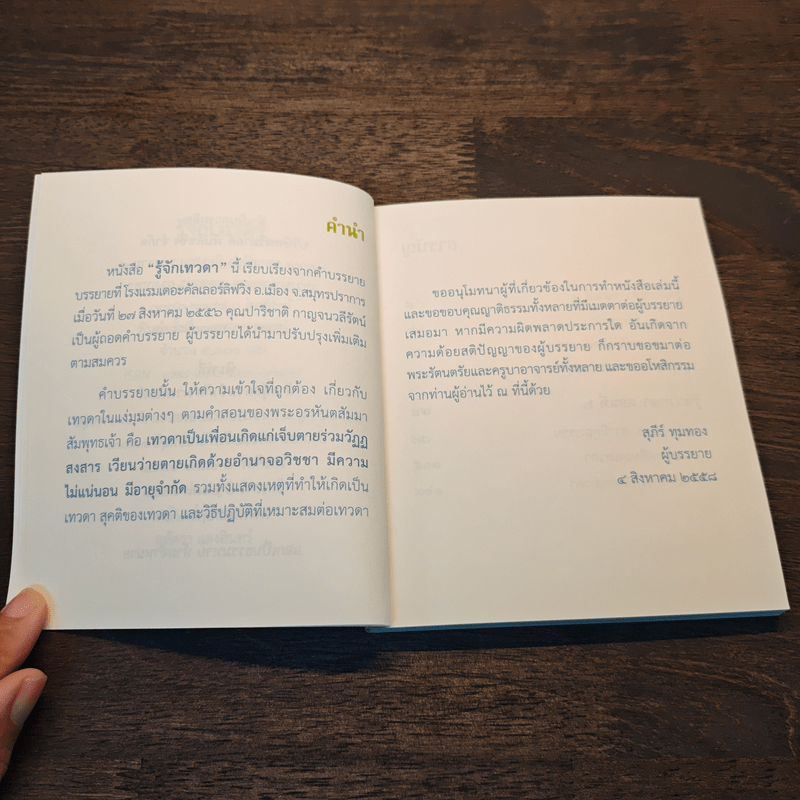 คำนำ
หนังสือ “รู้จักเทวดา” นี้ เรียบเรียงจากคำบรรยาย
บรรยายที่ โรงแรมเดอะคัลเลอร์ลิฟวิ่ง อ.เมือง จ.สมุทรปราการ
เมื่อวันที่ ๒๗ สิงหาคม ๒๕๕๖ คุณปาริชาติ กาญจนวลีรัตน์
เป็นผู้ถอดคำบรรยาย ผู้บรรยายได้นำมาปรับปรุงเพิ่มเติม
ตามสมควร
คำบรรยายนั้น ให้ความเข้าใจที่ถูกต้อง เกี่ยวกับ
เทวดาในแง่มุมต่างๆ ตามคำสอนของพระอรหันตสัมมา
สัมพุทธเจ้า คือ เทวดาเป็นเพื่อนเกิดแก่เจ็บตายร่วมวัฏฏ
สงสาร เวียนว่ายตายเกิดด้วยอำนาจอวิชชา มีความ
ไม่แน่นอน มีอายุจำกัด รวมทั้งแสดงเหตุที่ทำให้เกิดเป็น
เทวดา สุคติของเทวดา และวิธีปฏิบัติที่เหมาะสมต่อเทวดา
ขออนุโมทนาผู้ที่เกี่ยวข้องในการทำหนังสือเล่มนี้
และขอขอบคุณญาติธรรมทั้งหลายที่มีเมตตาต่อผู้บรรยาย
เสมอมา หากมีความผิดพลาดประการใด อันเกิดจาก
ความด้อยสติปัญญาของผู้บรรยาย ก็กราบขอขมาต่อ
พระรัตนตรัยและครูบาอาจารย์ทั้งหลาย และขออโหสิกรรม
จากท่านผู้อ่านไว้ ณ ที่นี้ด้วย
สุภีร์ ทุมทอง
ผู้บรรยาย
๔ สิงหาคม ๒๕๕๘